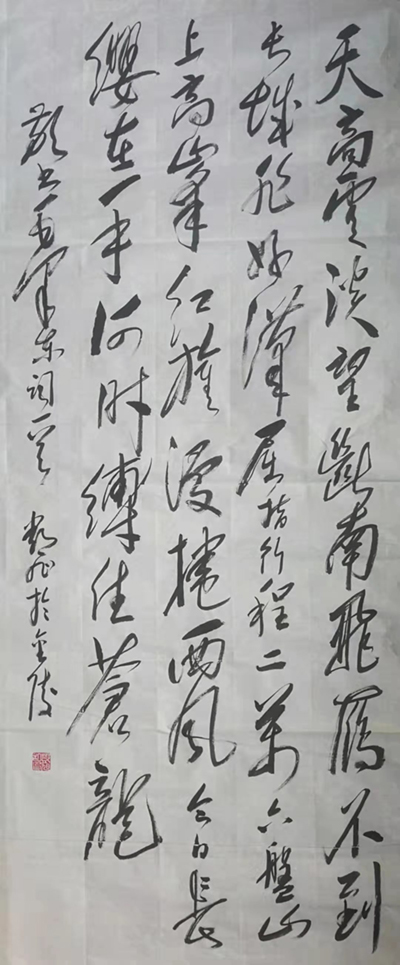 天高雲淡望斷南飛雁不到
长城非好漢屈指行程二萬六盤山
上高峯红旗漫捲西风今日長
纓在手何时縛住蒼龍
敬书毛泽东词一首 於金陵